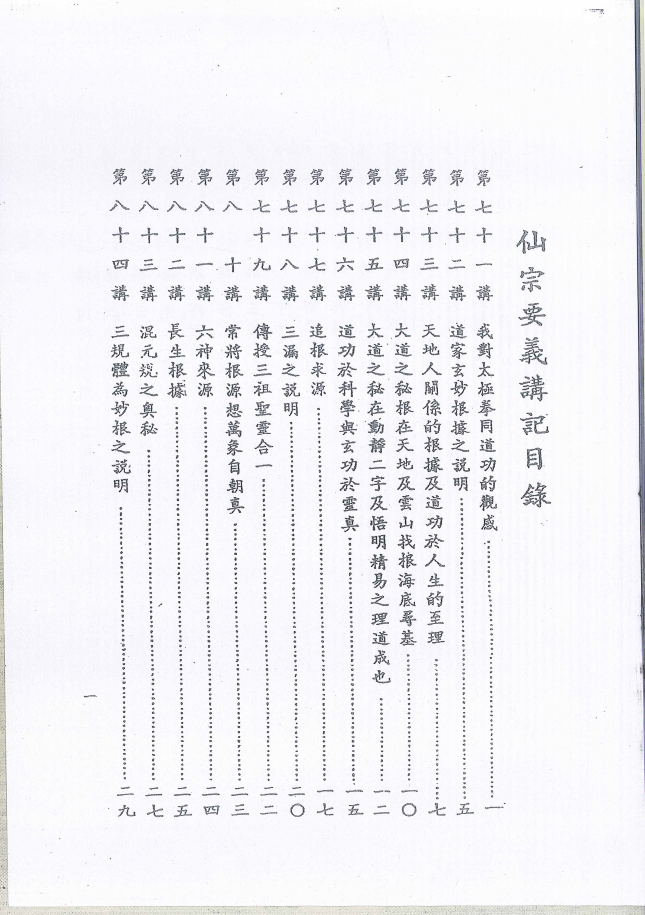 仙宗要義講記目錄
第七十一講 我對太極拳同道功的觀感……一
第七十二講 道家玄妙根據之說明……五
第七十三講 天地人關係的根據及道功於人生的至理……七
第七十四講 大道之秘根在天地及雲山找根海底尋基……一〇
第七十五講 大道之秘在動靜二字及悟明精易之理道成也……一二
第七十六講 道功於科學與玄功於靈真……一五
第七十七講 追根求源……一七
第七十八講 三漏之説明……二〇
第七十九講 傳授三祖聖靈合一……二二
第八十講 常將根源想萬象自朝真……二三
第八十一講 六神來源……二四
第八十二講 長生根據……二五
第八十三講 混元規之奧秘……二七
第八十四講 三規體為妙根之說明……二九
一